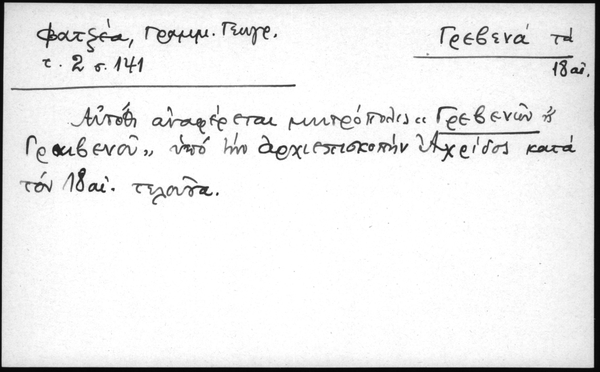 Φατζέα, Γραμμ. Γεωγρ.
τ. 2 σ. 141
Γρεβενά τά
18 αἰ.
Αὐτόθι ἀναφέρεται μητρόπολις « Γρεβενῶν ἤ
Γρεβενοῦ „ ὑπό τήν ἀρχιεπισκοπήν Ἀχρίδος κατά
τόν 18 αἰ. τελοῦσα.